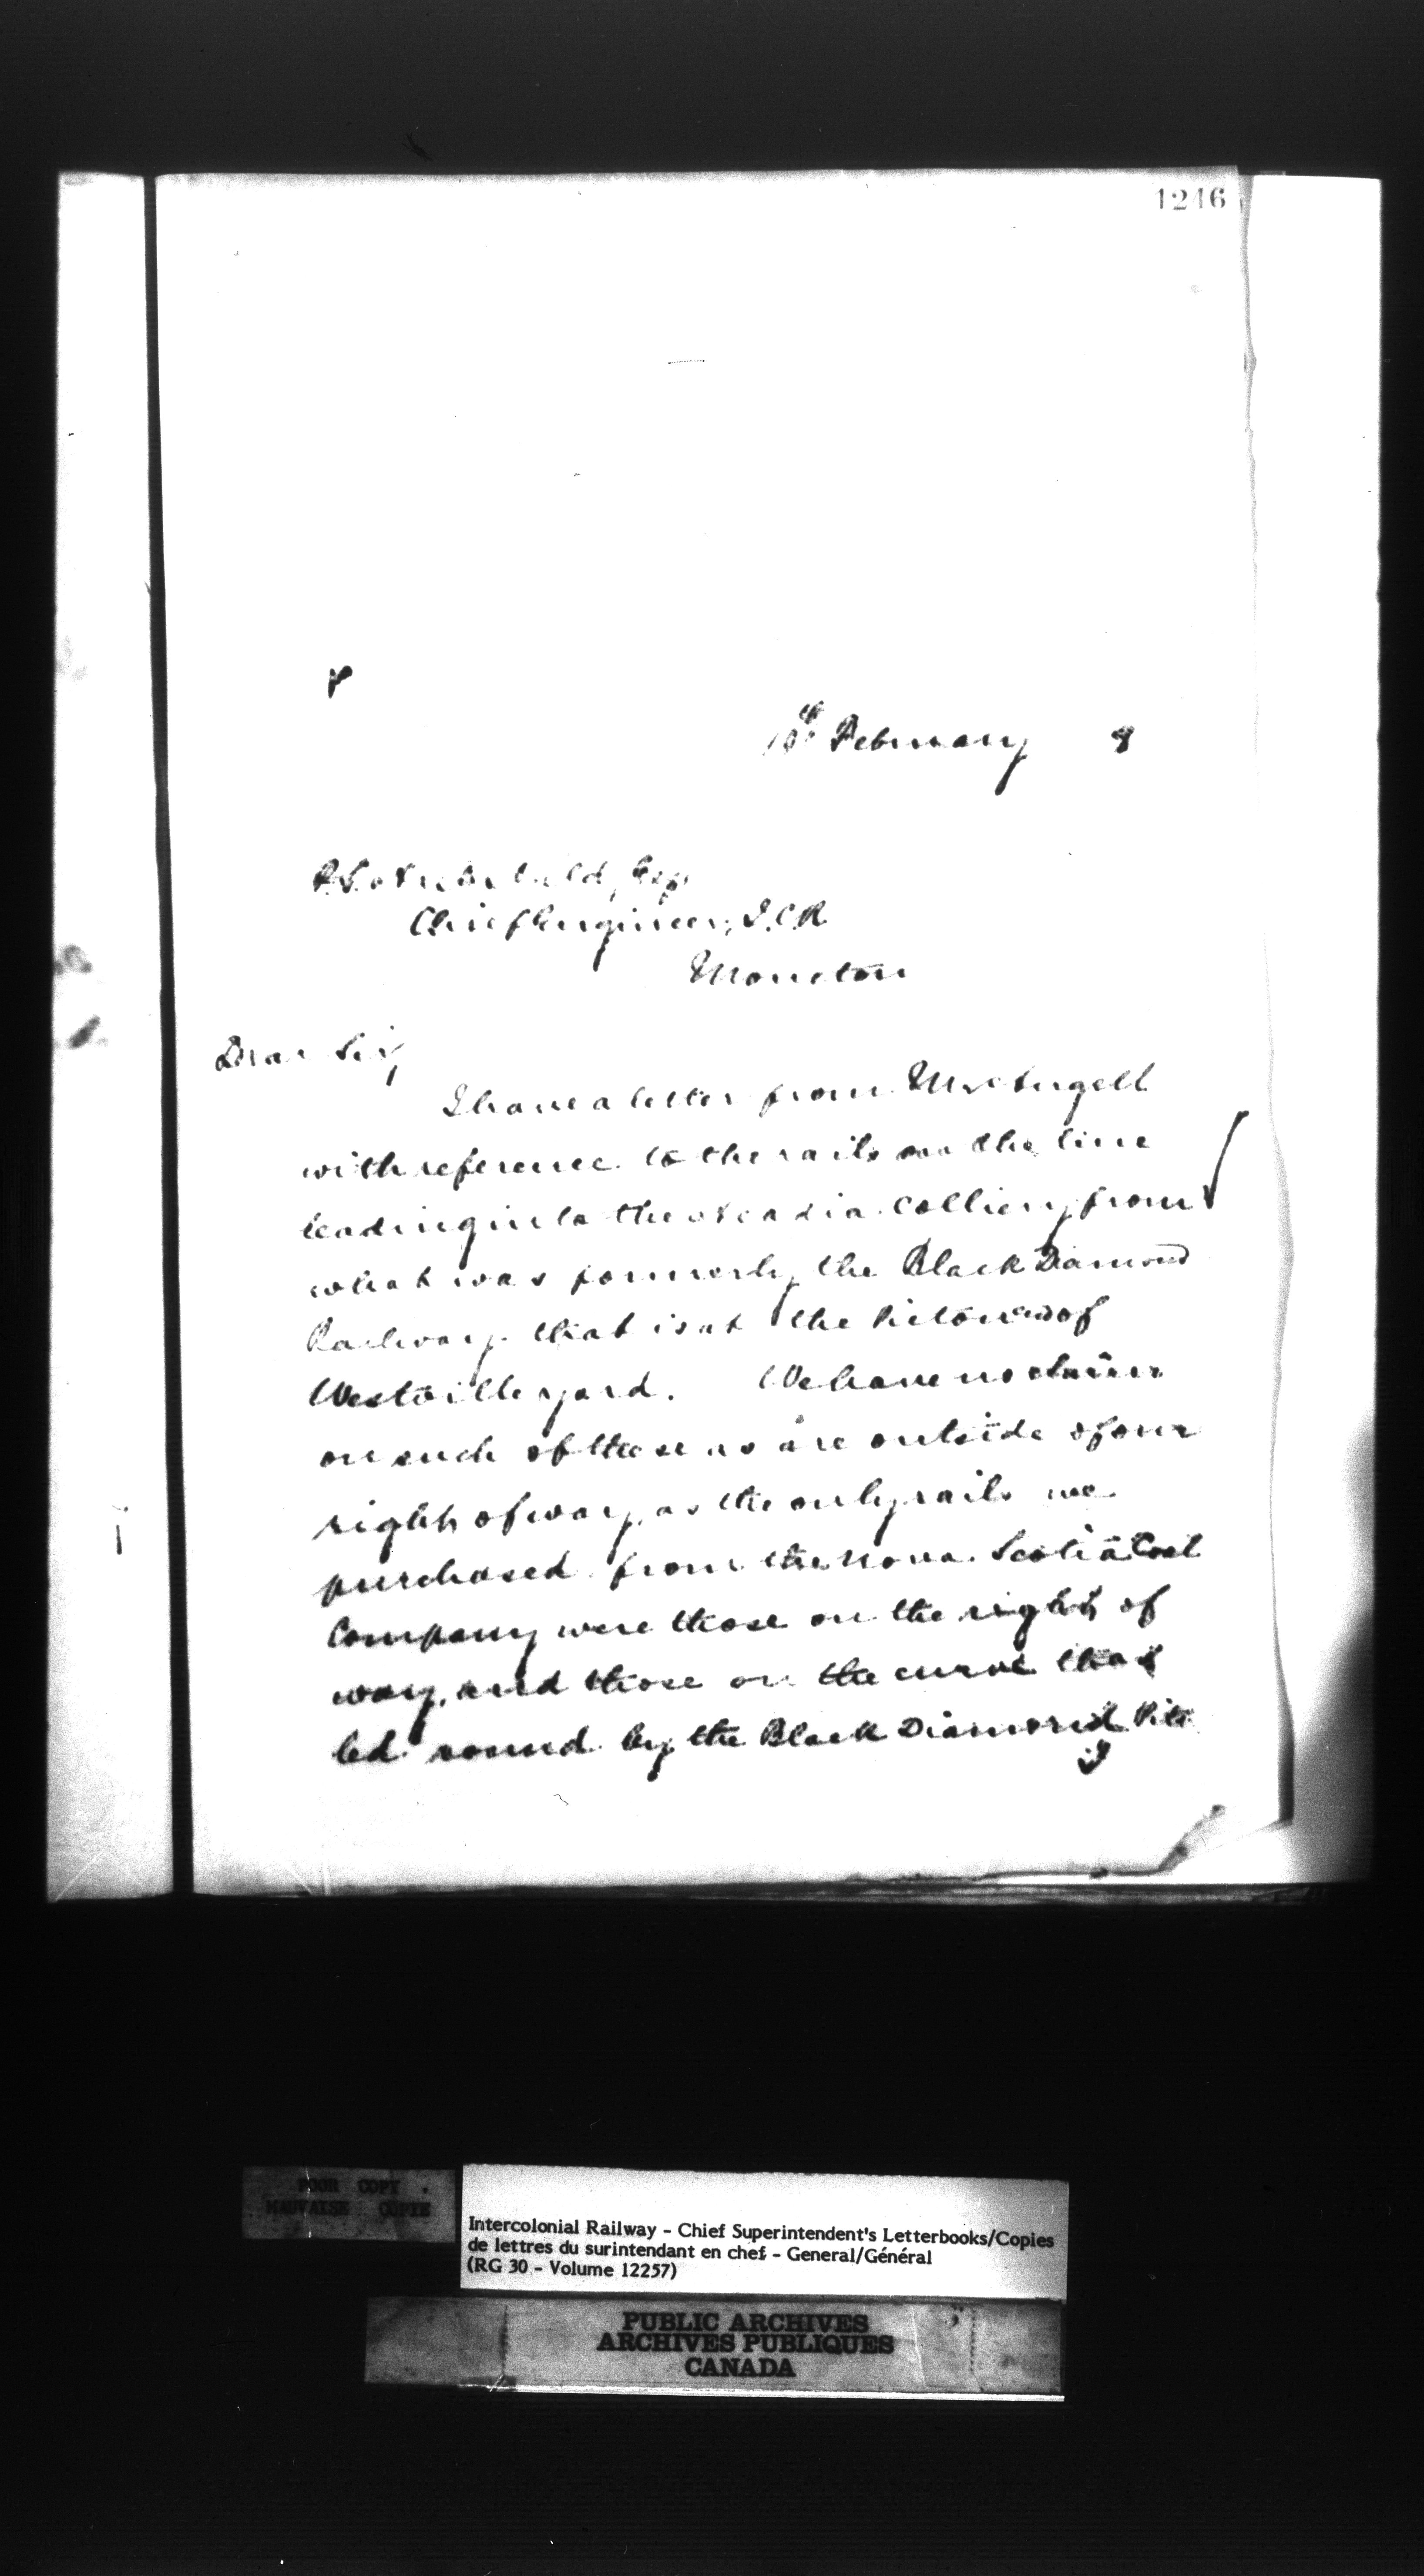 1246
10th February 8
P.S. Archibald, Esq
Chief Engineer, I.C.R
Moncton
Dear Sir,
I have a letter from Mr
with reference to the rails on the line
leading into the Acadia Colliery from
what was formerly the Black Diamond
Railway that is at the Pictou end of
Westville yard. We have no claim
on such of these as are outside of our
right of way, as the only rails we
purchased from the Nova Scotia Coal
Company were those on the right of
way, and those on the curve that
led round by the Black Diamond Pits
POOR COPY
MAUVAISE COPIE
Intercolonial Railway - Chief Superintendent's Letterbooks/Copies
de lettres du surintendant en chef - General/Général
(RG 30 - Volume 12257)
PUBLIC ARCHIVES
ARCHIVES PUBLIQUES
CANADA